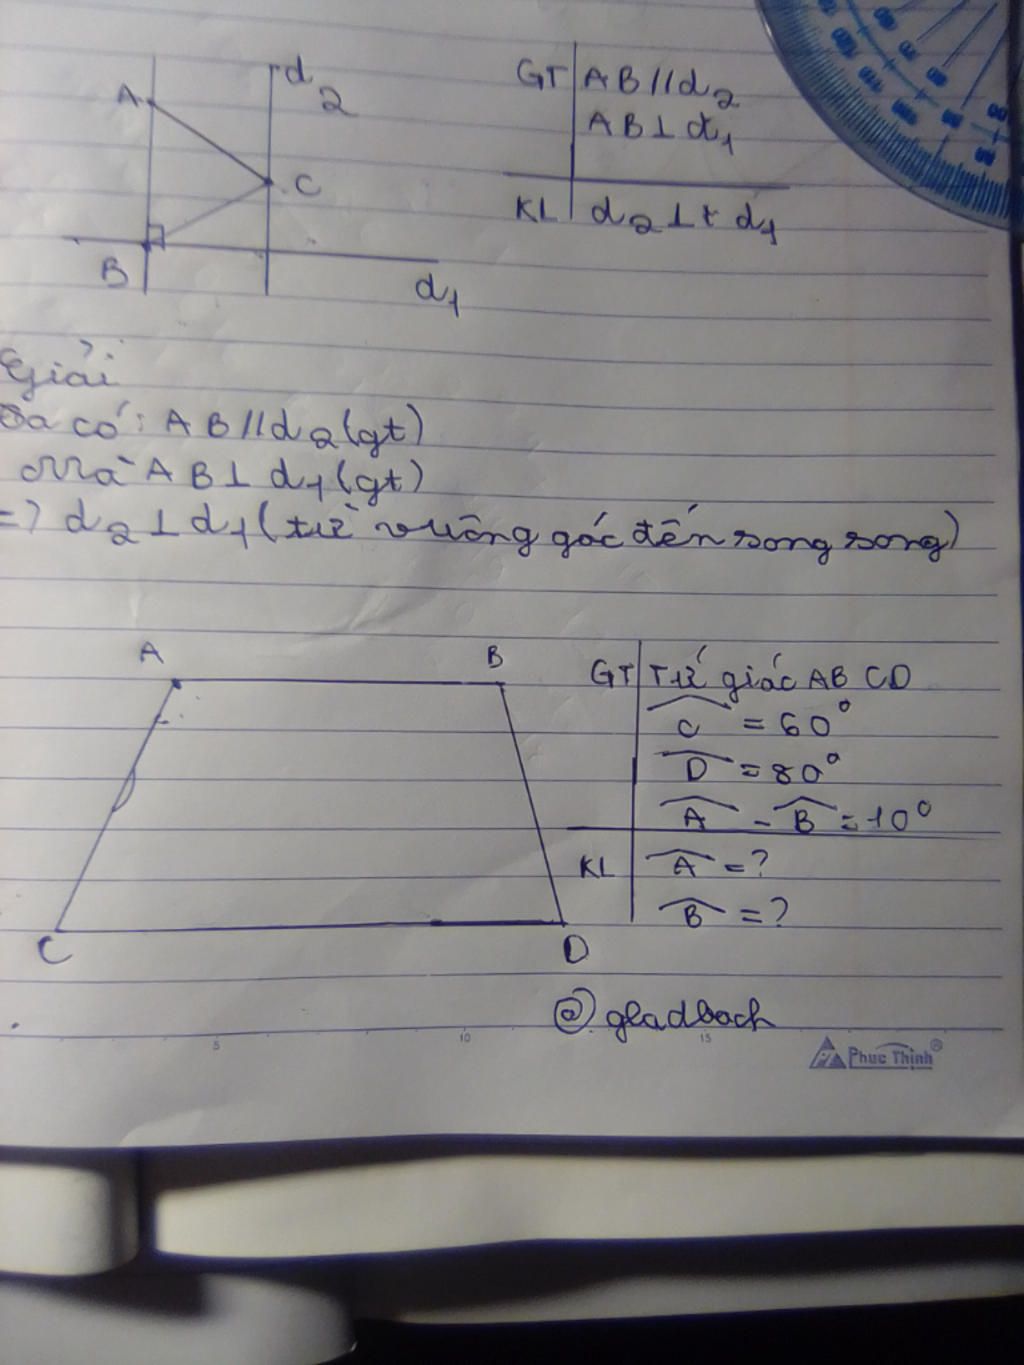 A
d2
C
B
d1
GT AB//d2
AB⊥d1
KL d2⊥ d1
Giải
Ta có: AB//d2(gt)
Mà AB⊥ d1(gt)
=> d2⊥ d1(từ vuông góc đến song song)
A B
C D
GT Tứ giác ABCD
C = 60°
D = 80°
A - B = 10°
KL A = ?
B = ?
@gladbach
5 10 15
Phuc Thinh®